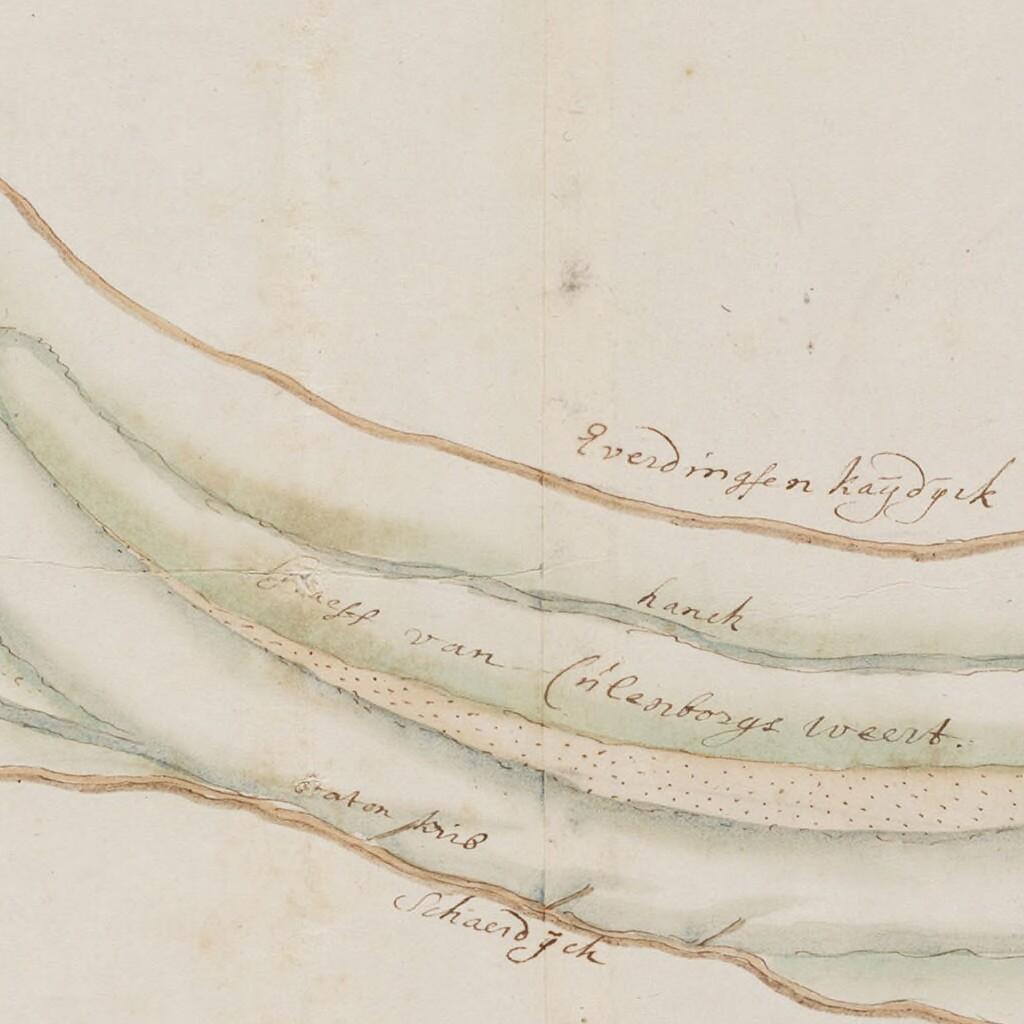 Everdingsen kaÿdÿck
hanck
Graeff van Cúlenborgs weert.
krib
Schaerdÿck